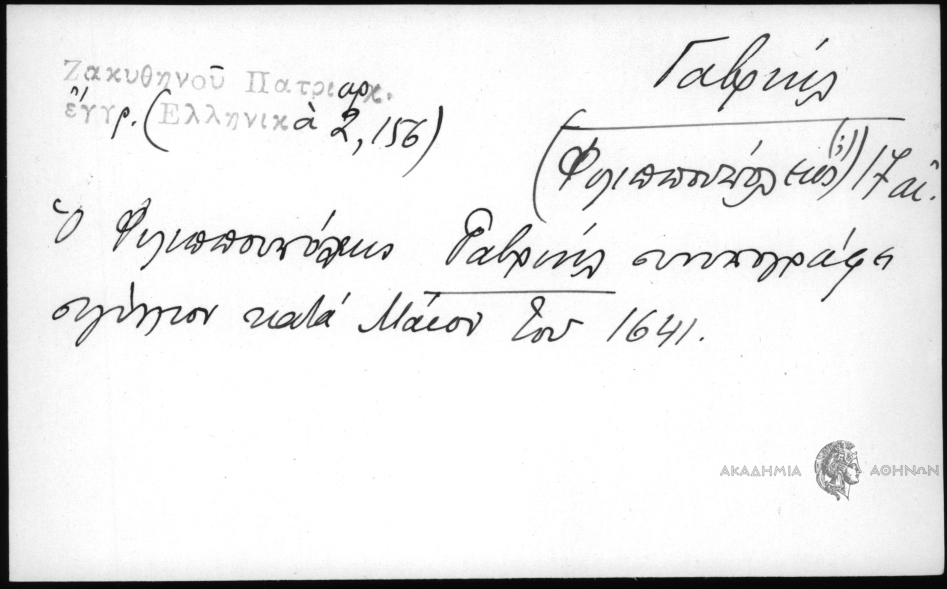 Ζακυθηνοῦ Πατριαρχ.
ἔγγρ. (Ἑλληνικὰ 2, 156)
Γαβριήλ
(Φιλιππουπόλεως (;)) 17 αἰ.
Ὁ Φιλιππουπόλεως Γαβριήλ συνυπογράφει
σιγίλλιον κατά Μάϊον τοῦ 1641.
ΑΚΑΔΗΜΙΑ ΑΘΗΝΩΝ